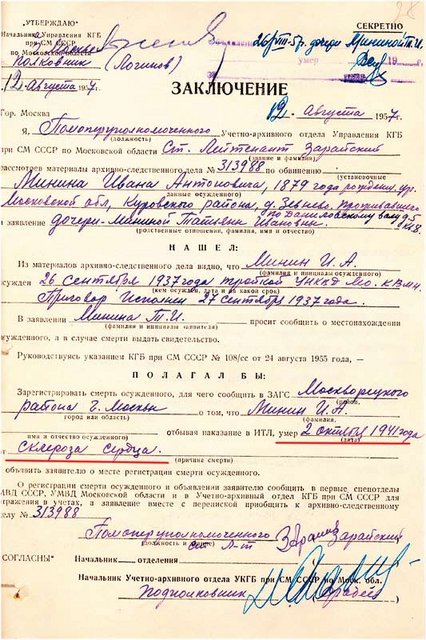 28
„УТВЕРЖДАЮ"
СЕКРЕТНО
Начальник Управления КГБ
при СМ СССР
по Московской области
26/VIII-57. дочери Мининой Т.И.
Полковник (Логинов)
умер
19
12 августа 1957 г.
ЗАКЛЮЧЕНИЕ
Гор. Москва
12 августа 1957 г.
Я, Помоперуполномоченного Учетно-архивного отдела Управления КГБ
(должность)
при СМ СССР по Московской области Ст. Лейтенант Зарайский
(звание и фамилия)
рассмотрев материалы архивно-следственного дела № 313988 по обвинению
(установочные
Минина Ивана Антоновича, 1879 года рождения, ур.
данные осужденного)
Московской обл, Куровского района, д. Зевнево. проживавшего
по Даниловскому валу д-5
и заявление дочери - Мининой Татьяны Ивановны. кв.
(родственные отношения, фамилия, имя и отчество)
НАШЕЛ:
Из материалов архивно-следственного дела видно, что Минин И.А.
(фамилия и инициалы осужденного)
осужден 26 сентября 1937 года тройкой УНКВД М.о. к ВМН.
(кем осужден, дата и на какой срок)
Приговор исполнен 27 сентября 1937 года.
В заявлении Минина Т.И. просит сообщить о местонахождении
(фамилия и инициалы заявителя)
осужденного, а в случае смерти выдать свидетельство.
Руководствуясь указанием КГБ при СМ СССР № 108/сс от 24 августа 1955 года, —
ПОЛАГАЛ БЫ:
Зарегистрировать смерть осужденного, для чего сообщить в ЗАГС Москворецкого
района г. Москвы о том, что Минин И.А.
город или область)
(фамилия,
отбывая наказание в ИТЛ, умер 2 октября 1941 года
имя и отчество осужденного)
(дата)
от склероза сердца.
(причина смерти)
объявить заявителю о месте регистрации смерти осужденного.
О регистрации смерти осужденного и объявлении заявителю сообщить в первые спецотделы
МВД СССР, УМВД Московской области и в Учетно-архивный отдел КГБ при СМ СССР для
отражения в учетах, а заявление вместе с перепиской приобщить к архивно-следственному
делу № 313988
Помоперуполномоченного
(должность и звание)
ст. л-т Зарайский
„СОГЛАСНЫ" Начальник отделения
Начальник Учетно-архивного отдела УКГБ при СМ СССР по Моск. обл.
подполковник